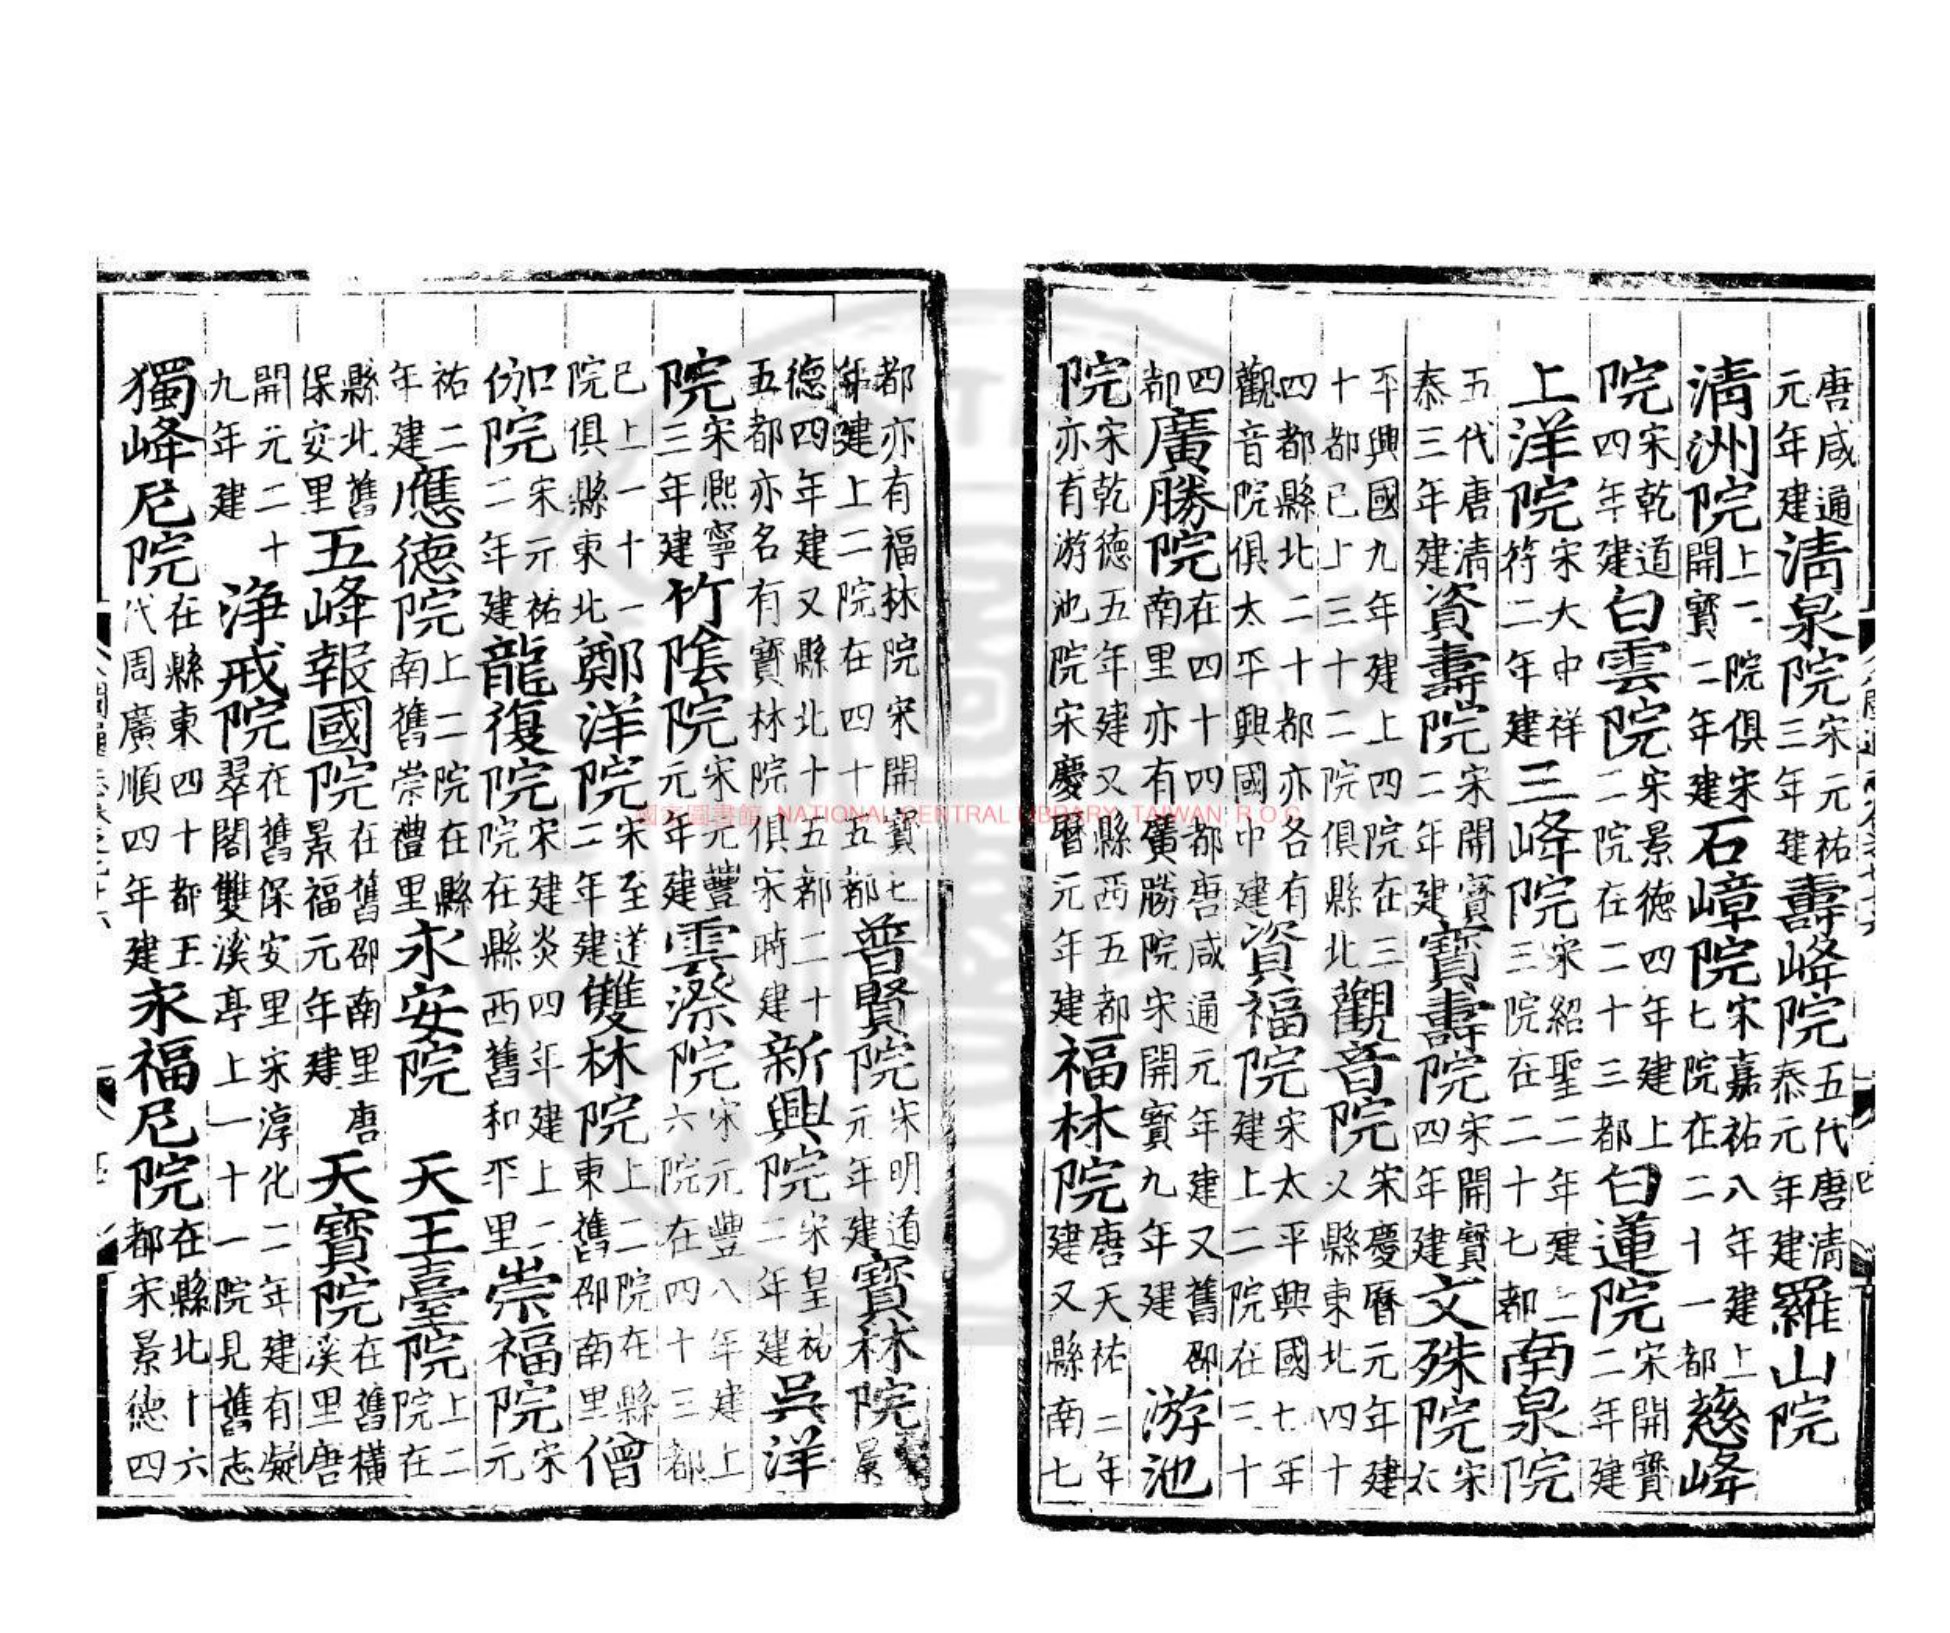 唐咸通元年建清泉院宋元祐三年建壽峰院五代唐清泰元年建羅山院
清洲院上二院俱宋開寶二年建石嶂院宋嘉祐八年建上七院在二十一都慈峰
院宋乾道四年建白雲院宋景德四年建上二院在二十三都白蓮院宋開寶二年建
上洋院宋大中祥符二年建三峰院宋紹聖二年建上三院在二十七都南泉院
五代唐清泰三年建資壽院宋開寶二年建寶壽院宋開寶四年建文殊院宋太
平興國九年建上四院在三十都已上三十二院俱縣北觀音院宋慶曆元年建又縣東北四十
四都縣北二十都亦各有觀音院俱太平興國中建資福院宋太平興國七年建上二院在三十
四都廣勝院在四十四都唐咸通元年建又舊邵南里亦有廣勝院宋開寶九年建游池
院宋乾德五年建又縣西五都亦有游池院宋慶曆元年建福林院唐天祐二年建又縣南七
都亦有福林院宋開寶七年建上二院在四十五都普賢院宋明道元年建寶林院景
德四年建又縣北十五都二十五都亦名有寶林院俱宋時建新興院宋皇祐二年建吳洋
院宋熙寧三年建竹陰院宋元豐元年建雲漈院宋元豐八年建上六院在四十三都
已上一十一院俱縣東北鄭洋院宋至道二年建雙林院上二院在縣東舊邵南里僧
伽院宋元祐二年建龍復院宋建炎四年建上二院在縣西舊和平里崇福院宋元
祐二年建應德院上二院在縣南舊崇禮里永安院天王臺院上二院在
縣北舊保安里五峰報國院在舊邵南里唐景福元年建天寶院在舊橫溪里唐
開元二十九年建淨戒院在舊保安里宋淳化二年建有凝翠閣雙溪亭上一十一院見舊志
獨峰尼院在縣東四十都五代周廣順四年建永福尼院在縣北十六都宋景德四
國立圖書館 NATIONAL CENTRAL LIBRARY, TAIWAN R.O.C.